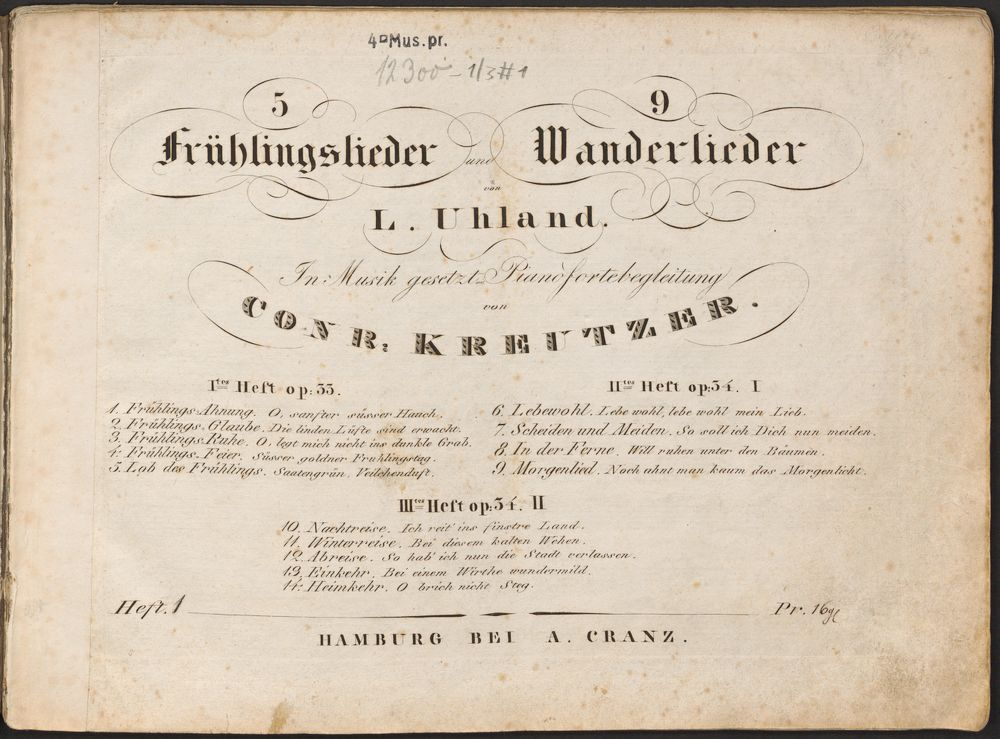 4° Mus. pr.
12300-1/3#1
5 9
Frühlingslieder und Wanderlieder
von
L. Uhland.
In Musik gesetzt Pianofortebegleitung
von
CONR: KREUTZER.
Ites Heft op: 33.
1. Frühlings-Ahnung. O, sanfter süsser Hauch.
2. Frühlings-Glaube. Die linden Lüfte sind erwacht.
3. Frühlings-Ruhe. O, legt mich nicht ins dunkle Grab.
4. Frühlings-Feier. Süsser goldner Fruhlingstag.
5. Lob des Frühlings. Saatengrün, Veilchenduft.
IItes Heft op: 34. I
6. Lebewohl. Lebe wohl, lebe wohl mein Lieb.
7. Scheiden und Meiden. So soll ich Dich nun meiden.
8. In der Ferne. Will ruhen unter den Bäumen.
9. Morgenlied. Noch ahnt man kaum das Morgenlicht.
IIItes Heft op: 34. II
10. Nachtreise. Ich reit' ins finstre Land.
11. Winterreise. Bei diesem kalten Wehen.
12. Abreise. So hab' ich nun die Stadt verlassen.
13. Einkehr. Bei einem Wirthe wundermild.
14. Heimkehr. O brich nicht Steg.
Heft. 1 Pr. 16 gl
HAMBURG BEI A. CRANZ.